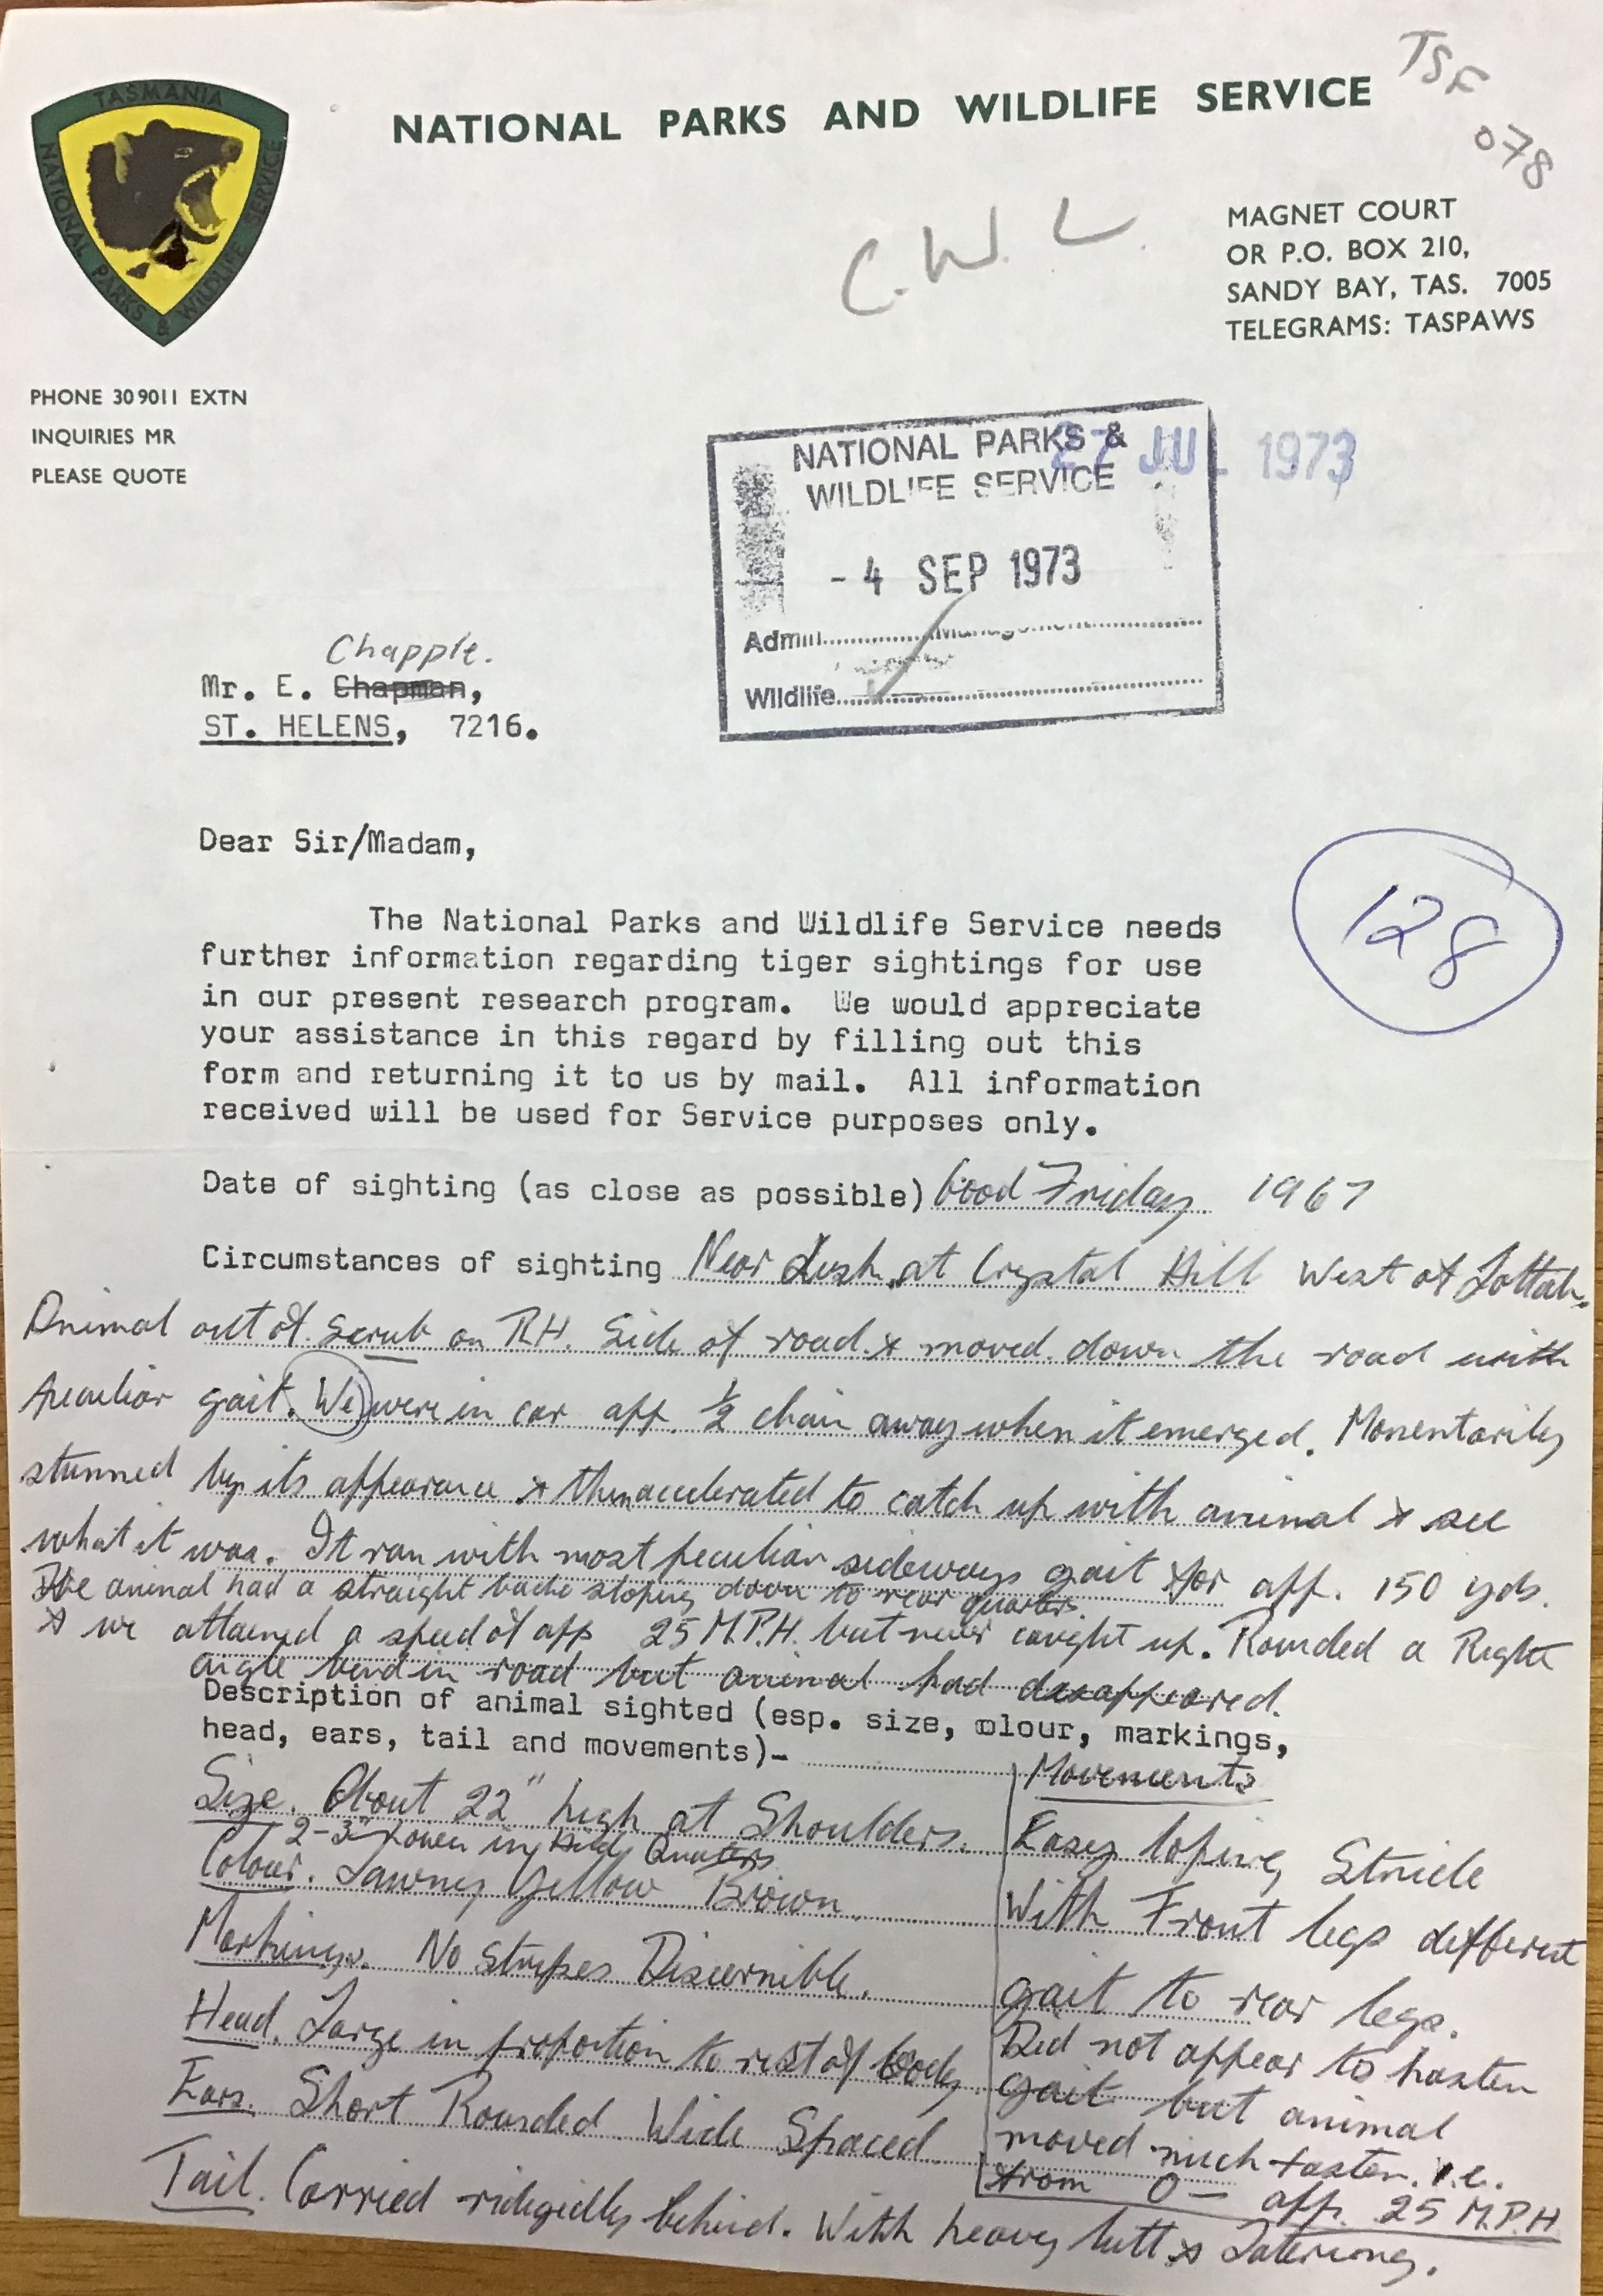 TSF
078
TASMANIA
NATIONAL PARKS & WILDLIFE SERVICE
NATIONAL PARKS AND WILDLIFE SERVICE
C.W.L.
MAGNET COURT
OR P.O. BOX 210,
SANDY BAY, TAS. 7005
TELEGRAMS: TASPAWS
PHONE 30 9011 EXTN
INQUIRIES MR
PLEASE QUOTE
27 JUL 1973
NATIONAL PARKS &
WILDLIFE SERVICE
- 4 SEP 1973
Admin. Management
Wildlife
Chapple.
Mr. E. Chapman,
ST. HELENS, 7216.
Dear Sir/Madam,
128
The National Parks and Wildlife Service needs
further information regarding tiger sightings for use
in our present research program. We would appreciate
your assistance in this regard by filling out this
form and returning it to us by mail. All information
received will be used for Service purposes only.
Date of sighting (as close as possible) Good Friday 1967
Circumstances of sighting Near at Crystal Hill West of Lottah.
Animal out of scrub on R.H. Side of road & moved down the road with
peculiar gait. We were in car app. ½ chain away when it emerged. Momentarily
stunned by its appearance & then accelerated to catch up with animal & see
what it was. It ran with most peculiar sideways gait for app. 150 yds.
The animal had a straight back sloping down to rear quarters.
& we attained a speed of app 25 M.P.H. but never caught up. Rounded a Right
angle bend in road but animal had disappeared.
Description of animal sighted (esp. size, colour, markings,
head, ears, tail and movements)-
Size. About 22" high at Shoulders.
2-3" Lower in Hind Quarters
Colour. Tawney Yellow Brown.
Markings. No stripes Discernible.
Head. Large in proportion to rest of body.
Ears. Short Rounded Wide Spaced.
Tail. Carried ridigidly behind. With heavy butt &
Movements
Easy loping Stride
With Front legs different
gait to rear legs.
Did not appear to hasten
gait but animal
moved much faster. i.e.
from 0 — app. 25 M.P.H